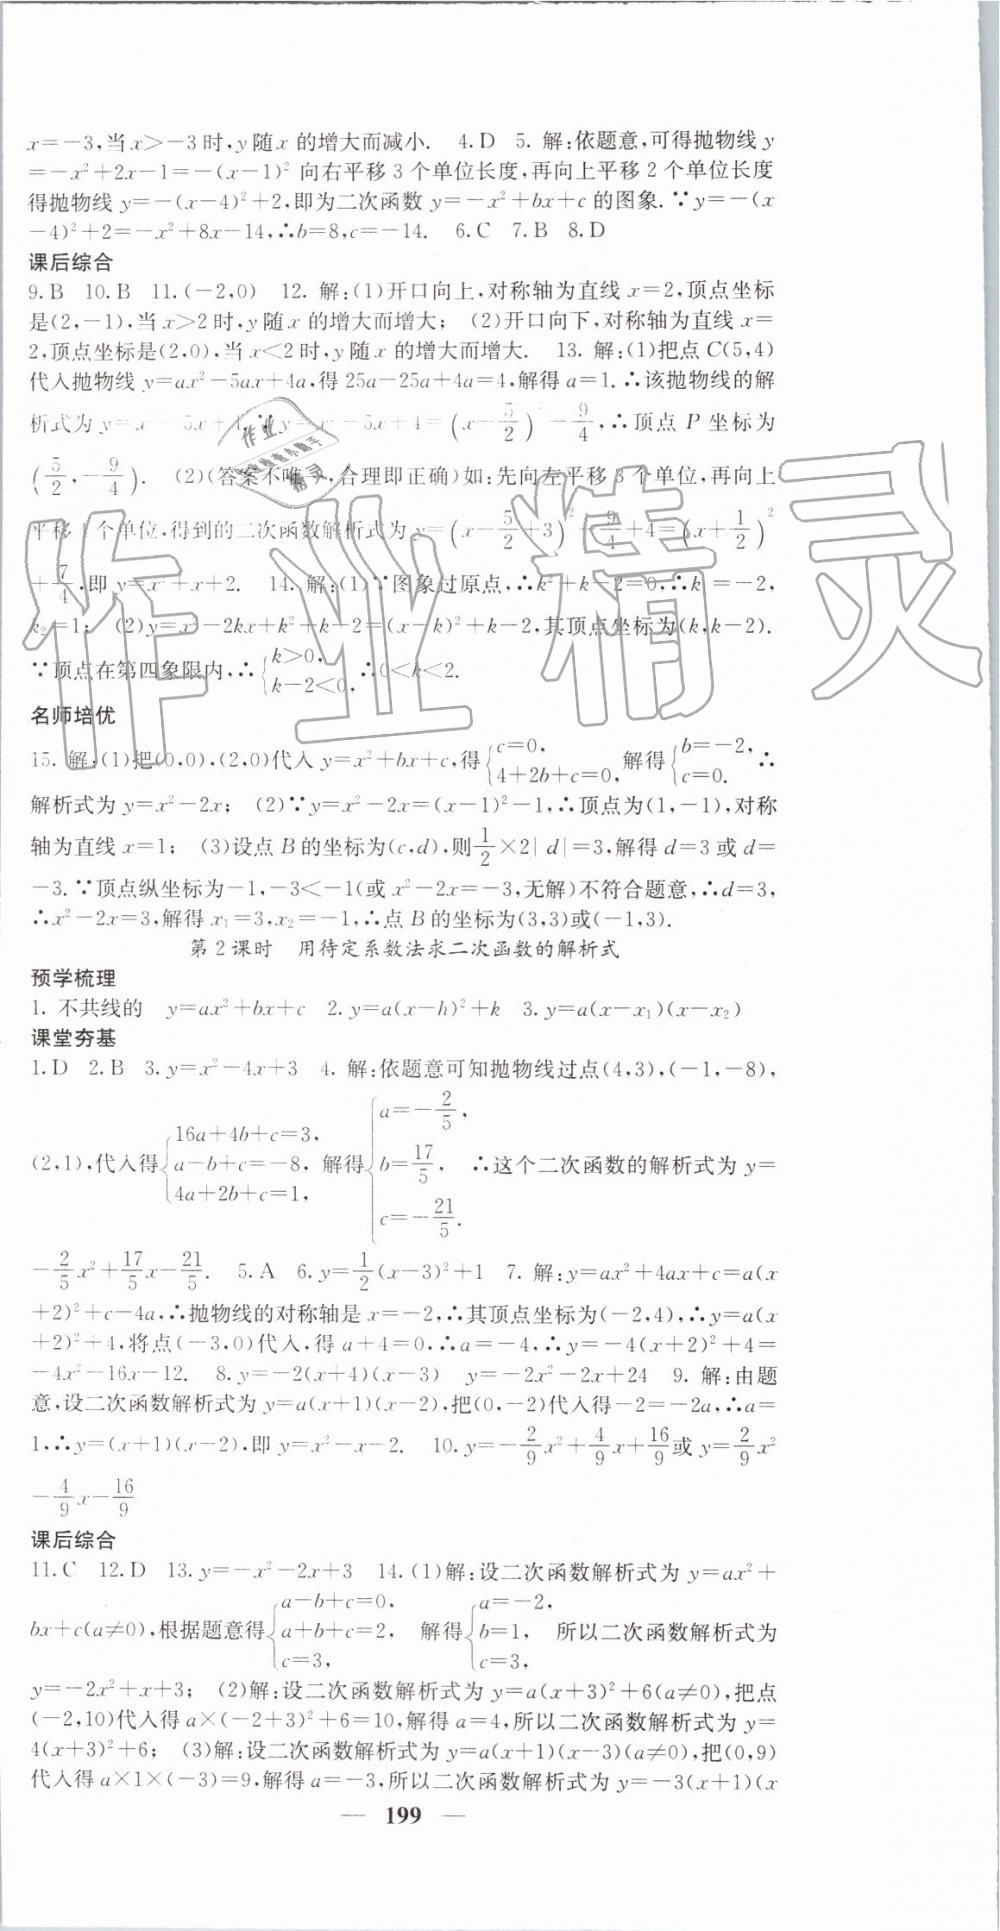 x=-3,当x>-3时,y随x的增大而减小. 4.D 5. 解:依题意,可得抛物线y
=-x²+2x-1=-(x-1)² 向右平移3个单位长度,再向上平移2个单位长度
得抛物线y=-(x-4)²+2,即为二次函数y=-x²+bx+c的图象.∵y=-(x
-4)²+2=-x²+8x-14,∴b=8,c=-14. 6.C 7.B 8.D
课后综合
9.B 10.B 11.(-2,0) 12. 解:(1)开口向上,对称轴为直线x=2,顶点坐标
是(2,-1),当x>2时,y随x的增大而增大; (2)开口向下,对称轴为直线x=
2,顶点坐标是(2,0),当x<2时,y随x的增大而增大. 13. 解:(1)把点C(5,4)
代入抛物线y=ax²-5ax+4a,得25a-25a+4a=4,解得a=1.∴该抛物线的解
析式为y=x²-5x+4.∵y=x²-5x+4=(x-5/2)²-9/4,∴顶点P坐标为
(5/2,-9/4). (2)(答案不唯一,合理即正确)如:先向左平移3个单位,再向上
平移4个单位,得到的二次函数解析式为y=(x-5/2+3)²-9/4+4=(x+1/2)²
+7/4,即y=x²+x+2. 14. 解:(1)∵图象过原点,∴k²+k-2=0,∴k₁=-2,
k₂=1; (2)y=x²-2kx+k²+k-2=(x-k)²+k-2,其顶点坐标为(k,k-2).
∵顶点在第四象限内,∴{k>0, k-2<0, ∴0<k<2.
名师培优
15. 解:(1)把(0,0),(2,0)代入y=x²+bx+c,得{c=0, 4+2b+c=0, 解得{b=-2, c=0. ∴
解析式为y=x²-2x; (2)∵y=x²-2x=(x-1)²-1,∴顶点为(1,-1),对称
轴为直线x=1; (3)设点B的坐标为(c,d),则1/2×2|d|=3,解得d=3或d=
-3.∵顶点纵坐标为-1,-3<-1(或x²-2x=-3,无解)不符合题意,∴d=3,
∴x²-2x=3,解得x₁=3,x₂=-1,∴点B的坐标为(3,3)或(-1,3).
第2课时 用待定系数法求二次函数的解析式
预学梳理
1. 不共线的 y=ax²+bx+c 2.y=a(x-h)²+k 3.y=a(x-x₁)(x-x₂)
课堂夯基
1.D 2.B 3.y=x²-4x+3 4. 解:依题意可知抛物线过点(4,3),(-1,-8),
(2,1),代入得{16a+4b+c=3, a-b+c=-8, 4a+2b+c=1, 解得{a=-2/5, b=17/5, c=-21/5. ∴这个二次函数的解析式为y=
-2/5x²+17/5x-21/5. 5.A 6.y=1/2(x-3)²+1 7. 解:y=ax²+4ax+c=a(x
+2)²+c-4a,∴抛物线的对称轴是x=-2,∴其顶点坐标为(-2,4),∴y=a(x
+2)²+4,将点(-3,0)代入,得a+4=0,∴a=-4,∴y=-4(x+2)²+4=
-4x²-16x-12. 8.y=-2(x+4)(x-3) y=-2x²-2x+24 9. 解:由题
意,设二次函数解析式为y=a(x+1)(x-2),把(0,-2)代入得-2=-2a,∴a=
1,∴y=(x+1)(x-2),即y=x²-x-2. 10.y=-2/9x²+4/9x+16/9或y=2/9x²
-4/9x-16/9
课后综合
11.C 12.D 13.y=-x²-2x+3 14.(1)解:设二次函数解析式为y=ax²+
bx+c(a≠0),根据题意得{a-b+c=0, a+b+c=2, c=3, 解得{a=-2, b=1, c=3, 所以二次函数解析式为
y=-2x²+x+3; (2)解:设二次函数解析式为y=a(x+3)²+6(a≠0),把点
(-2,10)代入得a×(-2+3)²+6=10,解得a=4,所以二次函数解析式为y=
4(x+3)²+6; (3)解:设二次函数解析式为y=a(x+1)(x-3)(a≠0),把(0,9)
代入得a×1×(-3)=9,解得a=-3,所以二次函数解析式为y=-3(x+1)(x
— 199 —
作业精灵